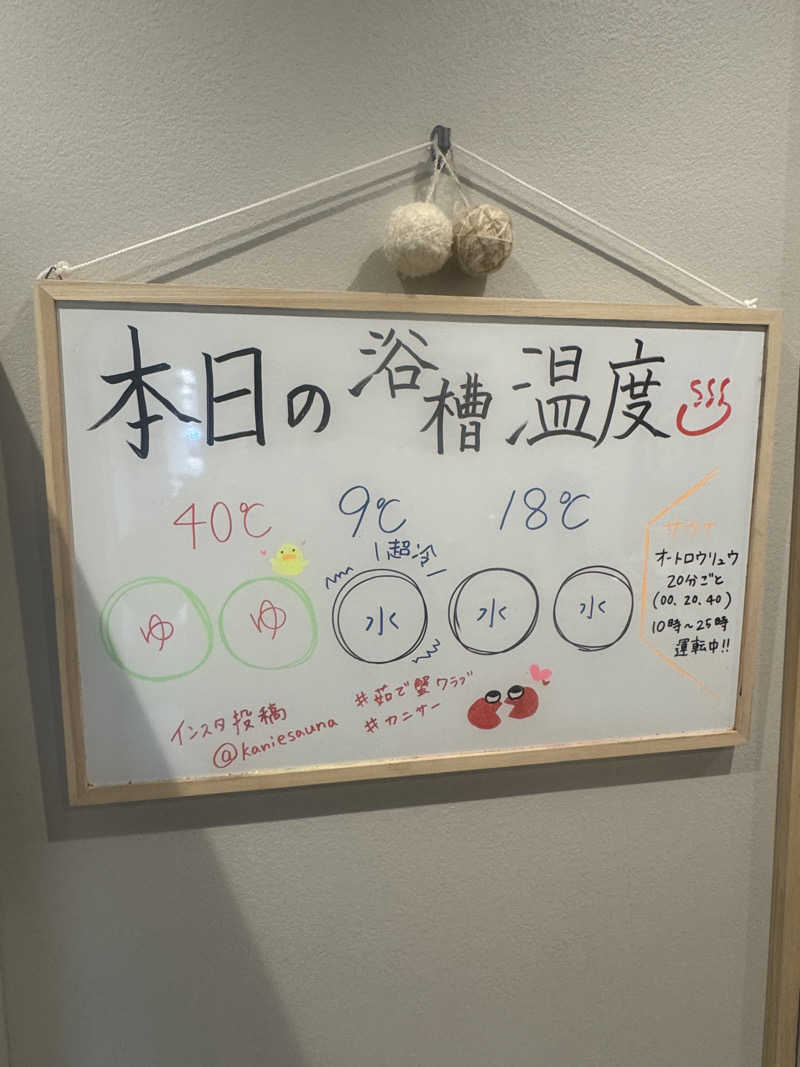 本日の浴槽温度
40℃ 9℃ 18℃
超冷
ゆ ゆ 水 水 水
サウナ
オートロウリュウ
20分ごと
(00. 20. 40)
10時~25時
運転中!!
インスタ投稿
@kaniesauna
#茹で蟹クラブ
#カニサー